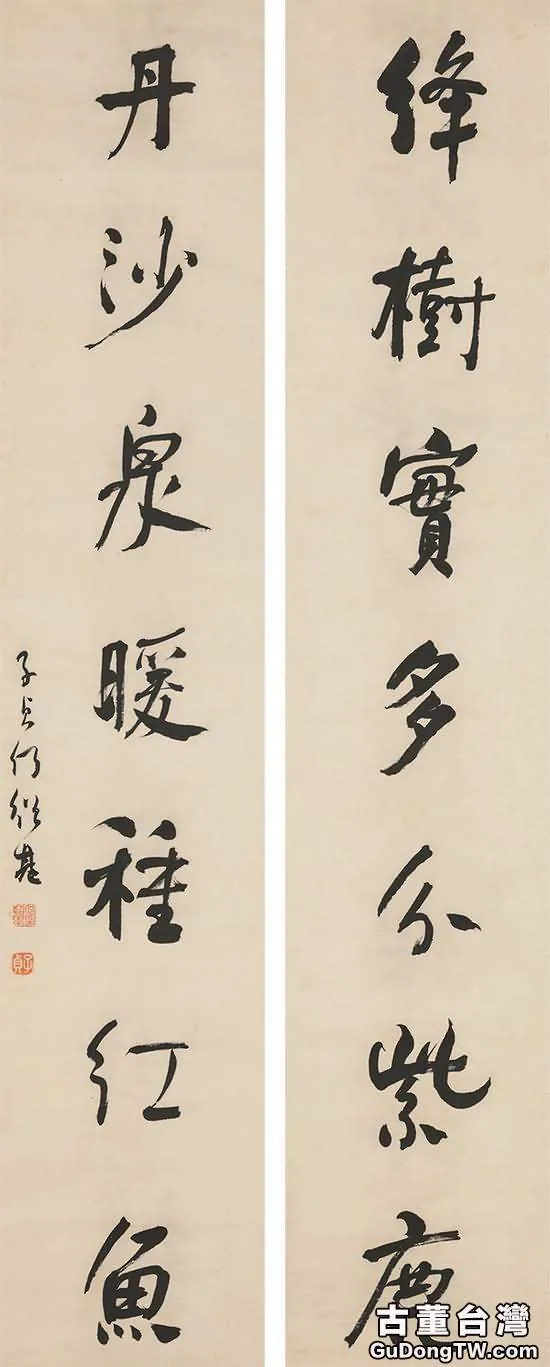 絳樹實多分紫鹿
丹沙泉暖種紅魚
子貞何紹基
子貞
古董台灣
GuDongTW.com